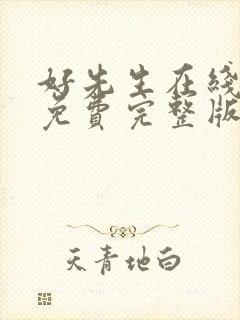 好先生在线
免費完整版
天青地白